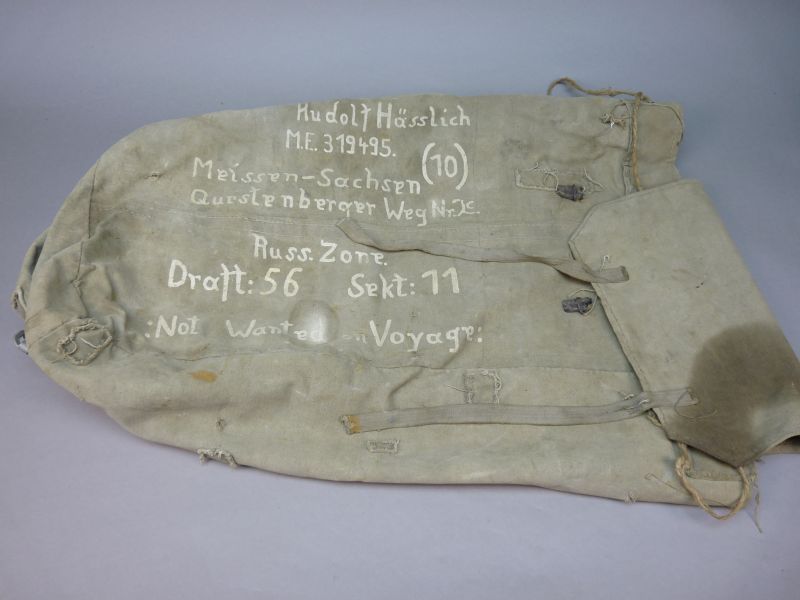 Rudolf Hässlich
M.E. 319495.
(10)
Meissen-Sachsen
Questenberger Weg Nr.
Russ. Zone.
Draft: 56 Sekt: 11
:Not Wanted on Voyage: